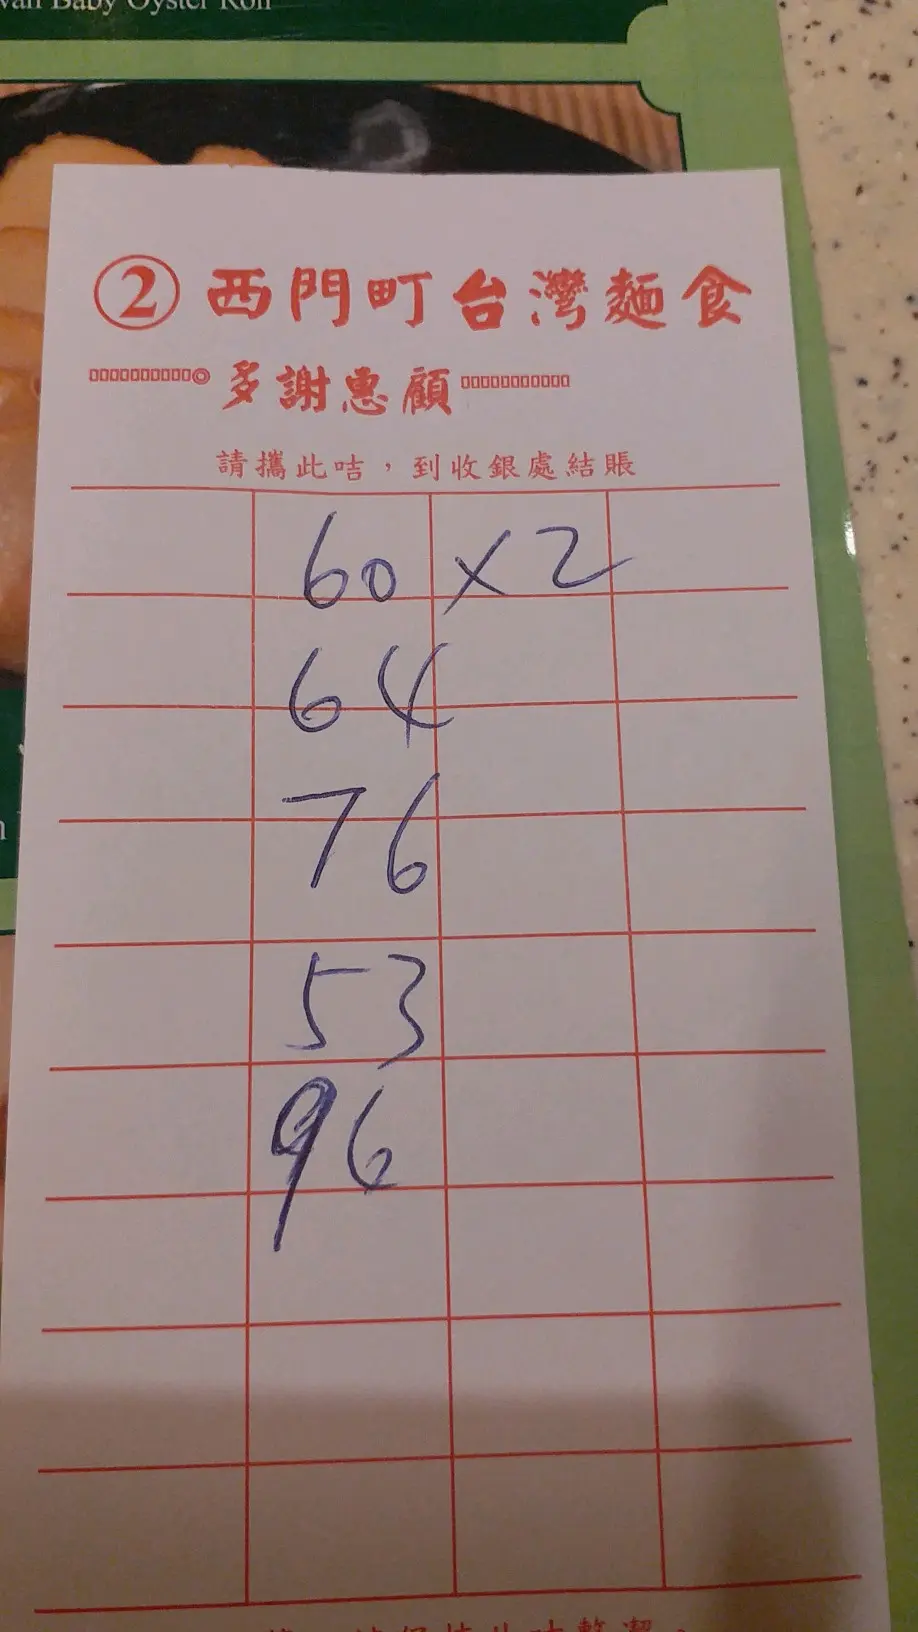 van Baby Oyster Roll
② 西門町台灣麵食
多謝惠顧
請攜此咭，到收銀處結賬
60 × 2
64
76
53
96